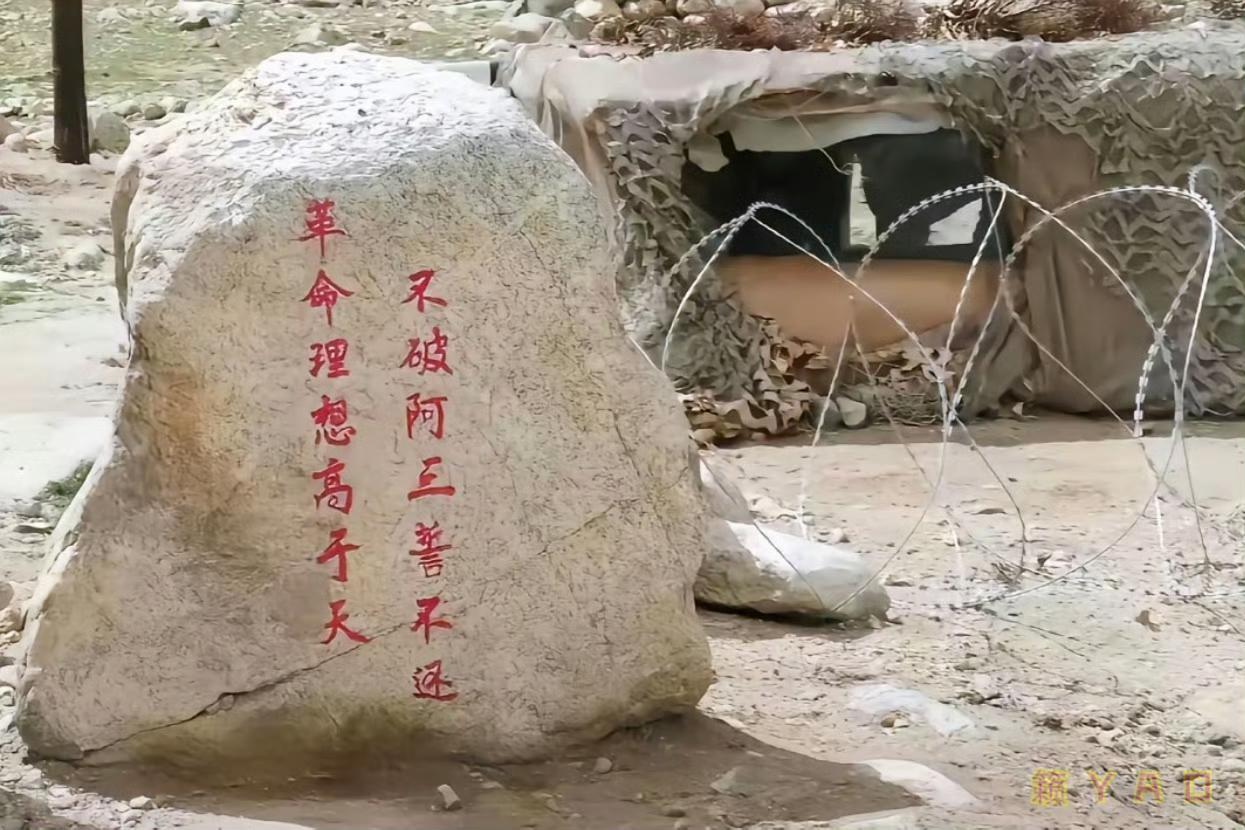 革命理想高于天
不破阿三誓不还